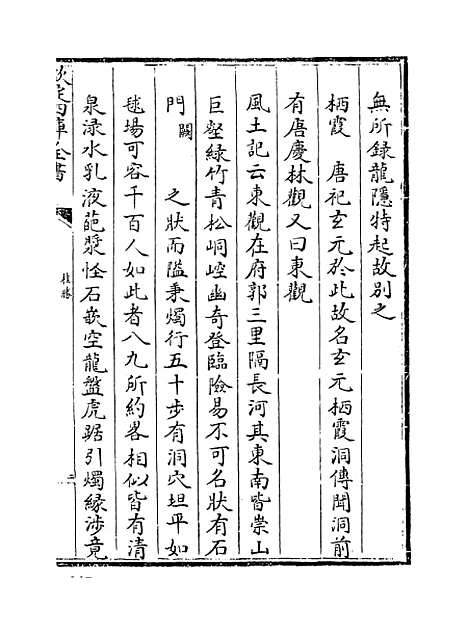 無所録龍隱特起故别之
栖霞　唐祀玄元於此故名玄元栖霞洞傳聞洞前
有唐慶林觀又曰東觀
風土記云東觀在府郭三里隔長河其東南皆崇山
巨壑緑竹青松崆峒幽奇登臨險易不可名狀有石
門闕　之狀而隘秉燭行五十步有洞穴坦平如
毬場可容千百人如此者八九所約畧相似皆有清
泉渌水乳液葩漿怪石嵌空龍盤虎踞引燭縁涉竟
欽定四庫全書
桂勝
二